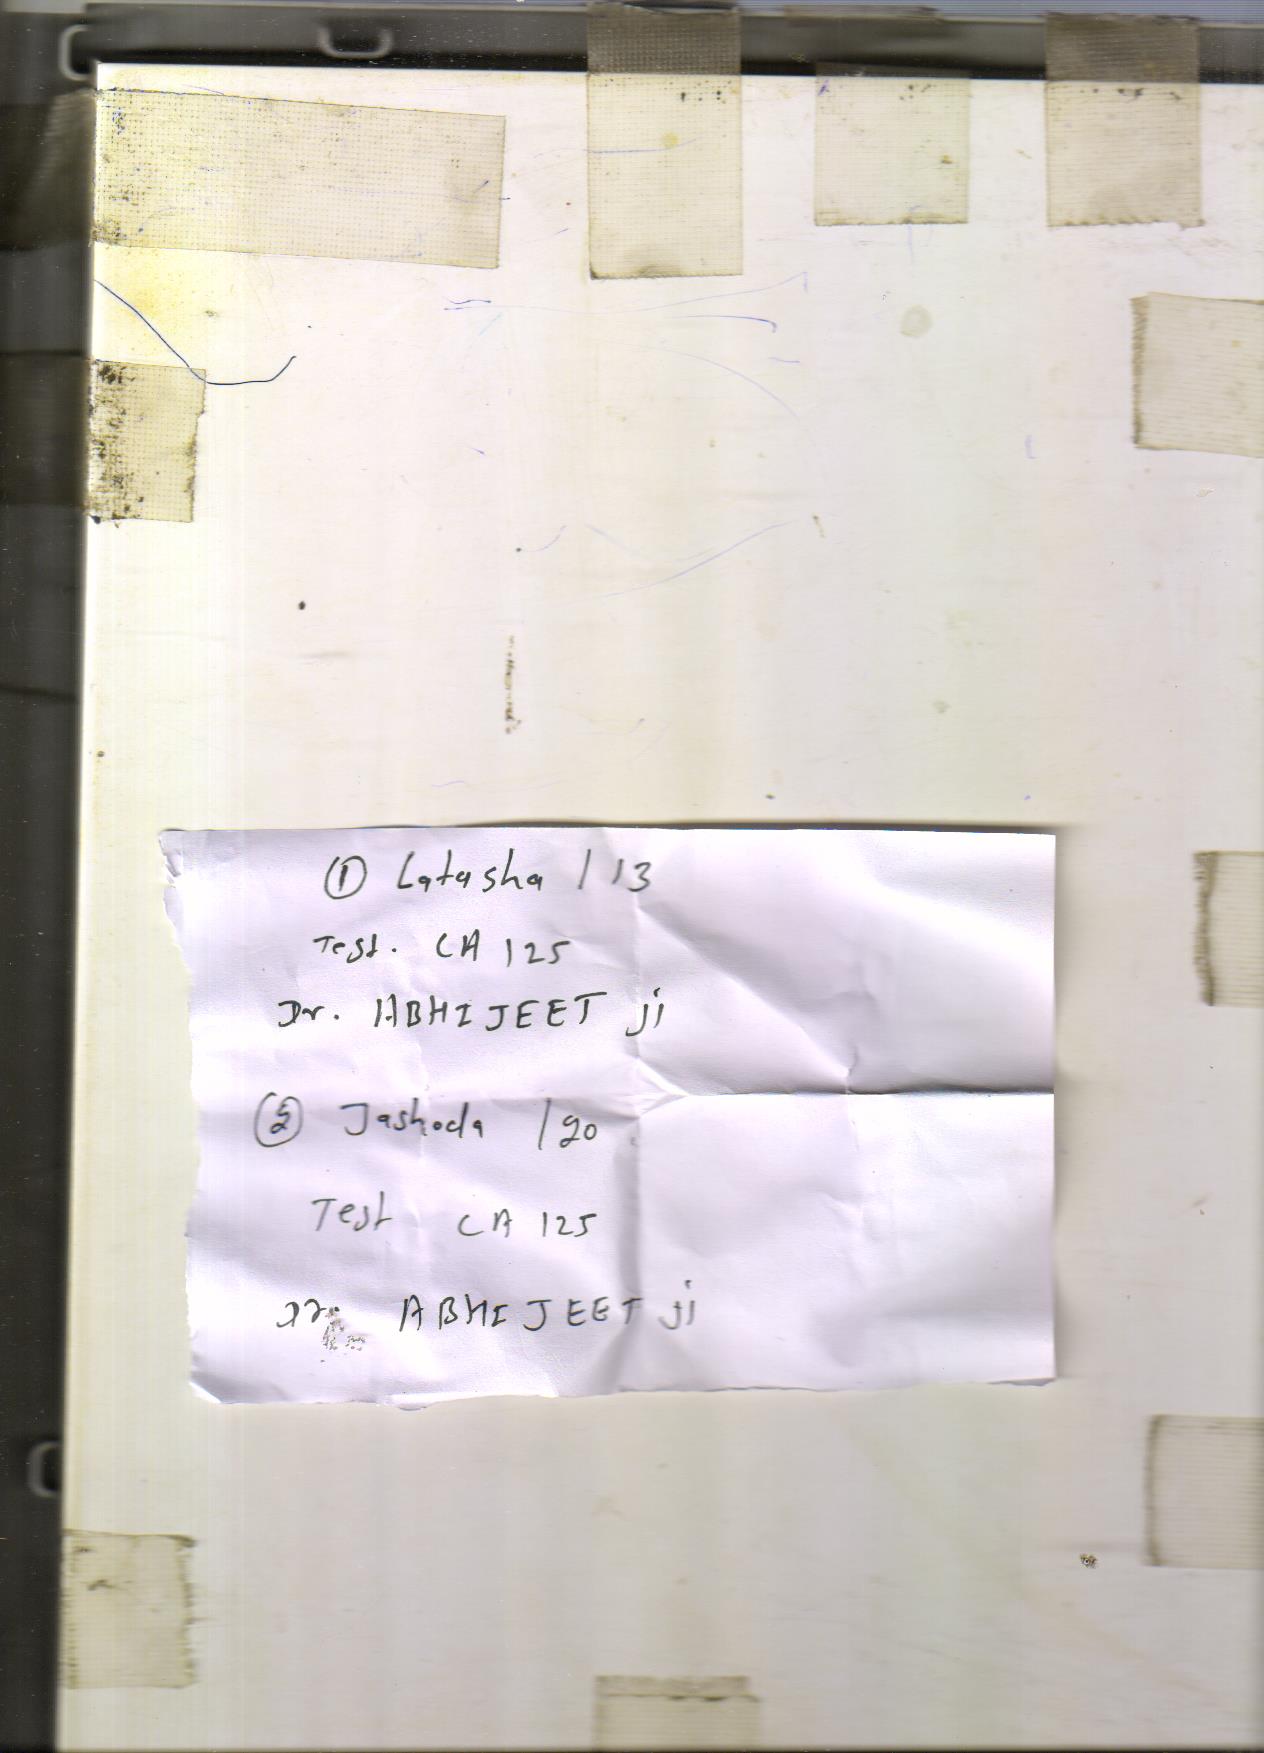 ① Latasha / 13
Test. CA 125
Dr. ABHIJEET ji
② Jashoda / 20
Test CA 125
Dr. ABHIJEET ji